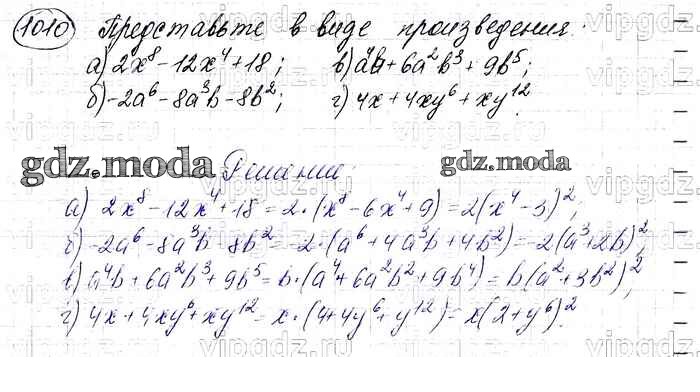 1010 Представьте в виде произведения:
а) 2x⁸ - 12x⁴ + 18; в) a⁴b + 6a²b³ + 9b⁵;
б) -2a⁶ - 8a³b - 8b²; г) 4x + 4xy⁶ + xy¹².
gdz.moda Решение: gdz.moda
а) 2x⁸ - 12x⁴ + 18 = 2·(x⁸ - 6x⁴ + 9) = 2(x⁴ - 3)²;
б) -2a⁶ - 8a³b - 8b² = -2·(a⁶ + 4a³b + 4b²) = -2(a³ + 2b)²;
в) a⁴b + 6a²b³ + 9b⁵ = b·(a⁴ + 6a²b² + 9b⁴) = b(a² + 3b²)²;
г) 4x + 4xy⁶ + xy¹² = x·(4 + 4y⁶ + y¹²) = x(2 + y⁶)².